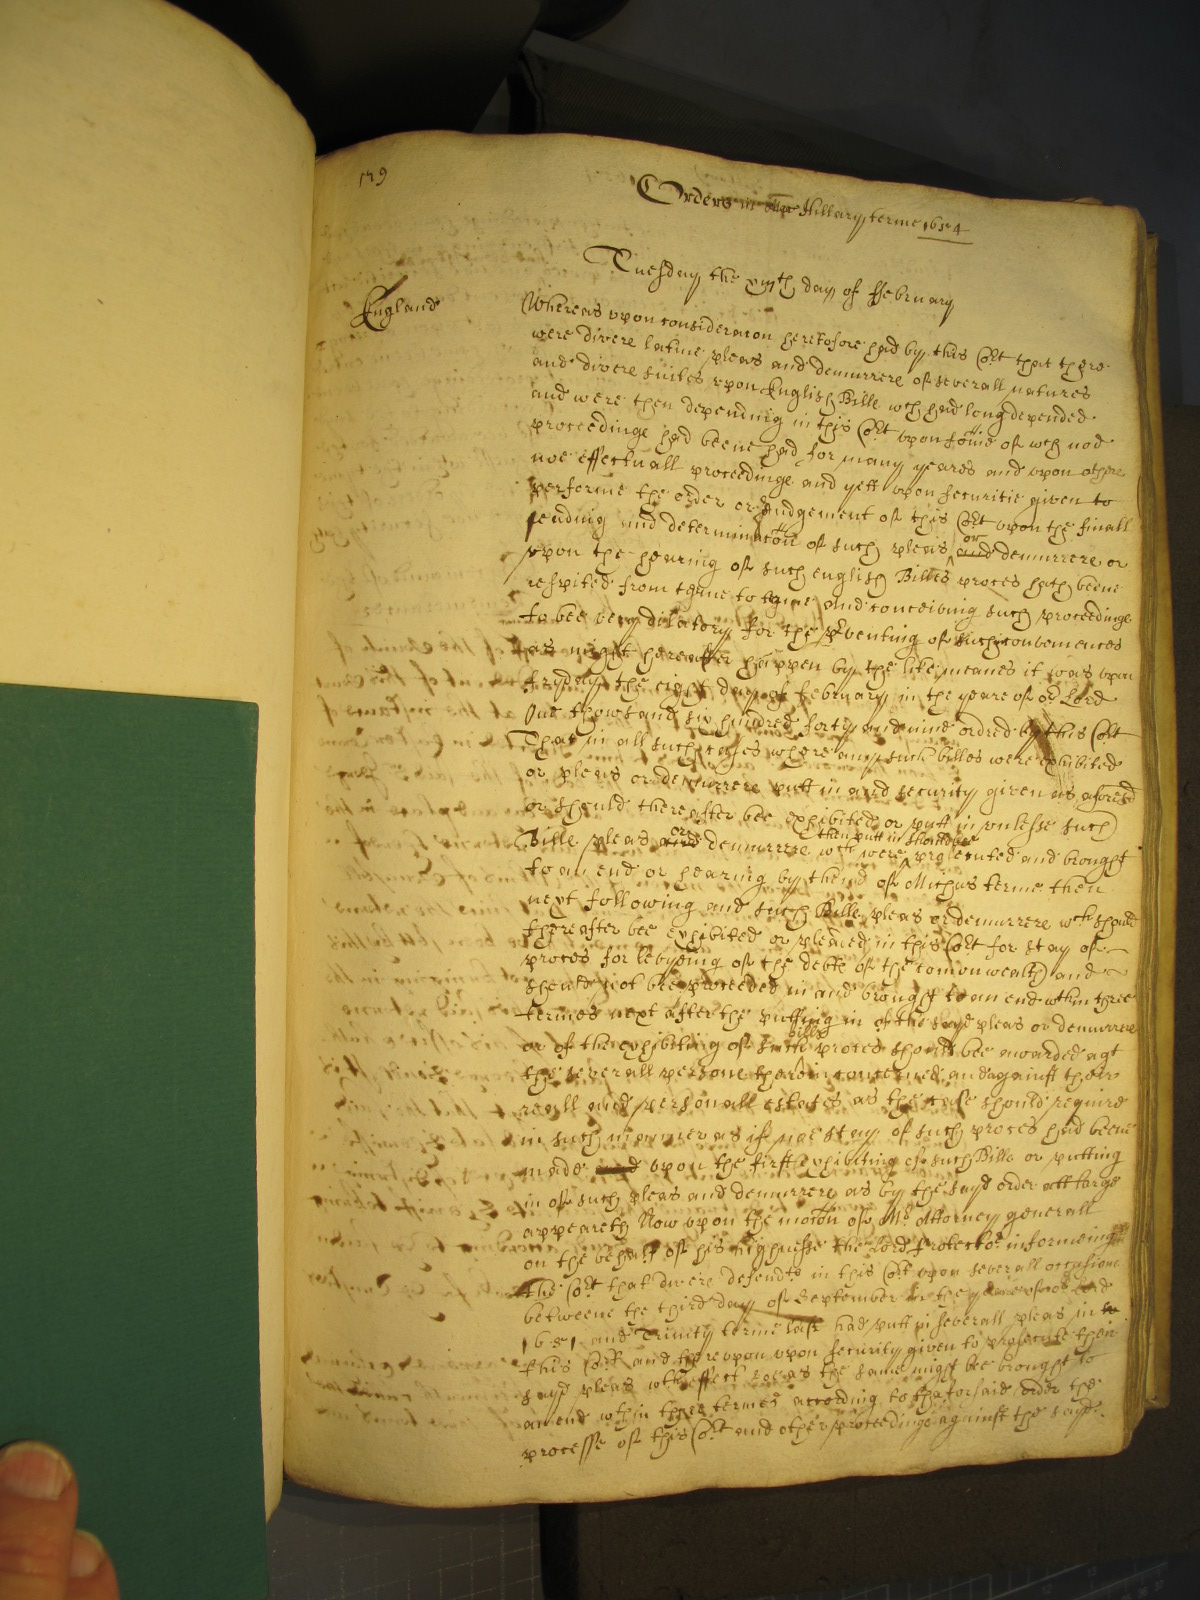 179
Orders in Hillary terme 1654
Tuesday the xiijth day of ffebruary
England
Whereas upon consideracon heretofore had by this Cort that there
were divers latine pleas and demurrers of severall natures
and divers suites upon English Bills wch had long depended
and were then depending in this Cort upon some of wch noe
proceedings had beene had for many yeares and upon others
noe effectuall proceedings and yett upon securitie given to
performe the order or Judgement of this Cort upon the finall
ending and determinacon of such pleas or and demurrers or
upon the hearing of such english Billes proces hath beene
respited from tyme to tyme and conceiving such proceedings
to bee very dilatory for the pventing of such inconveniences
as might hereafter happen by the like meanes it was upon
fryday the eight day of February in the yeare of or Lord
One thowsand six hundred forty and nine ordred by this Cort
That in all such cases where any such billes were exhibited
or pleas or demurrers putt in and security given as aforesd
or should thereafter bee exhibited or putt in unlesse such
Bills pleas or and demurrers wch were then putt in should bee prosecuted and brought
to an end or hearing by the end of Michās terme then
next following and such Bills pleas or demurrers wch should
thereafter bee exhibited or pleaded in this Cort for stay of
proces for levying of the debts of the comonwealth and
should not bee proceeded in and brought to an end wthin three
termes next after the putting in of the sayd pleas or demurrers
or of the exhibiting of such bills proces should bee awarded agt
the severall persons therein concerned and against their
reall and personall estates as the case should require
in such manner as if noe stay of such proces had beene
made upon the first exhibiting of such Bills or putting
in of such pleas and demurrers as by the sayd order att large
appeareth Now upon the mocon of Mr Attorney generall
on the behalf of his highnesse the Lord Protector informeing
the Cort that divers defendts in this Cort upon severall occasions
betweene the third day of September in the yeare of or Lord
1651 and Trinity terme last had putt in severall pleas in to
this Cort and thereupon upon security given to prosecute their
sayd pleas wth effect soe as the same might bee brought to
an end wthin three termes according to thaforsaid order the
processe of this Cort and other proceedings against the sayd